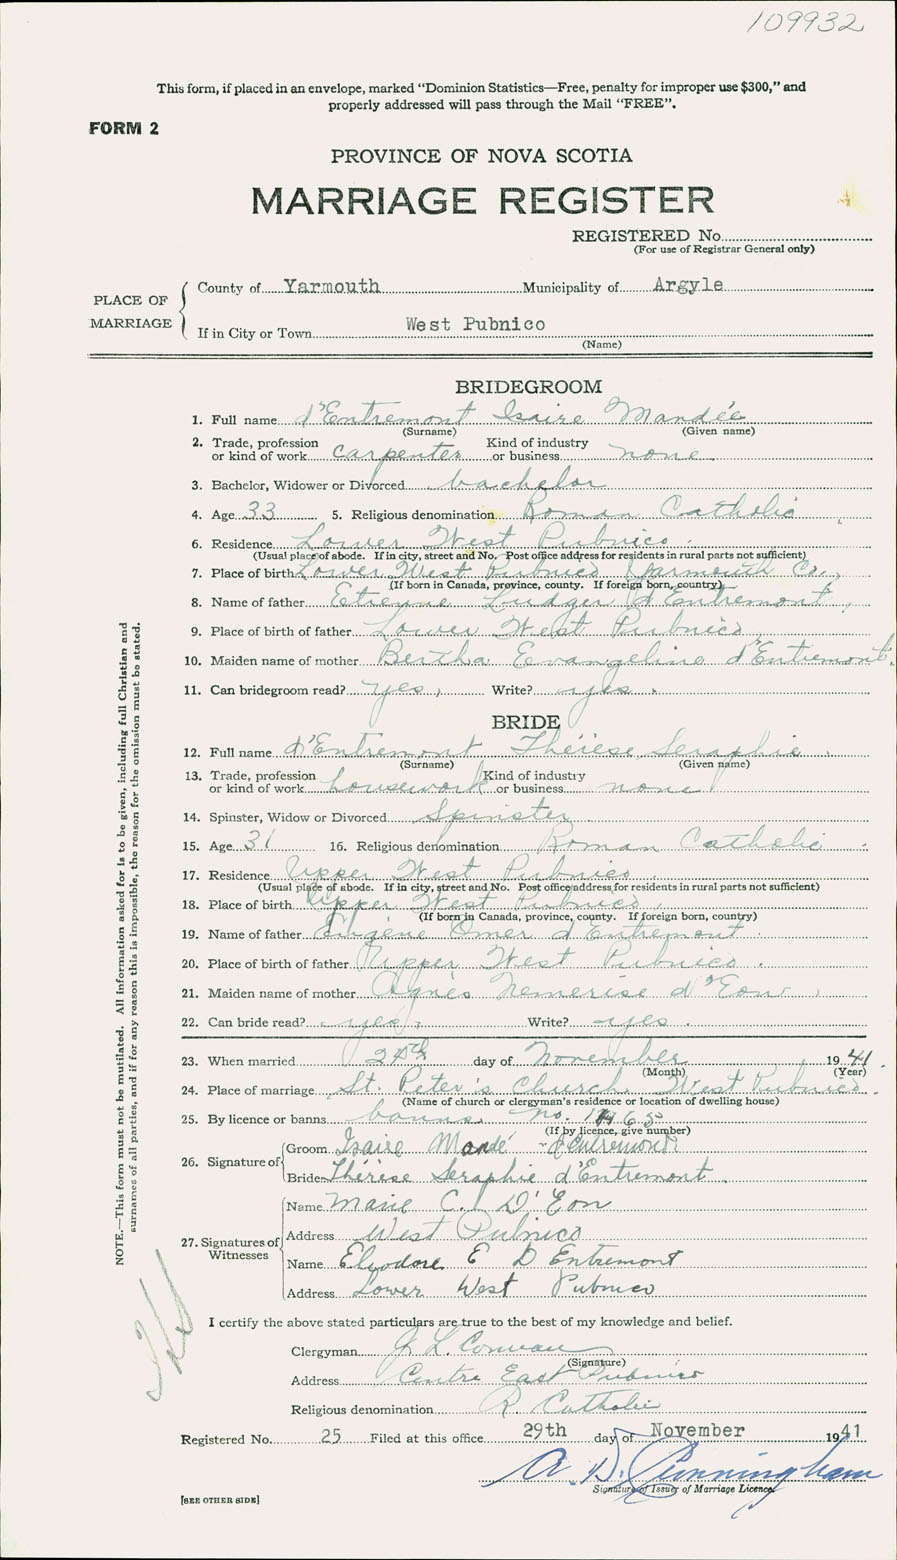 109932
This form, if placed in an envelope, marked “Dominion Statistics—Free, penalty for improper use $300,” and
properly addressed will pass through the Mail “FREE”.
FORM 2
PROVINCE OF NOVA SCOTIA
MARRIAGE REGISTER
REGISTERED No.
(For use of Registrar General only)
PLACE OF MARRIAGE
County of Yarmouth Municipality of Argyle
If in City or Town West Pubnico
(Name)
BRIDEGROOM
1. Full name d'Entremont Isaire Mandée
(Surname) (Given name)
2. Trade, profession or kind of work carpenter Kind of industry or business none
3. Bachelor, Widower or Divorced bachelor
4. Age 33 5. Religious denomination Roman Catholic
6. Residence Lower West Pubnico.
(Usual place of abode. If in city, street and No. Post office address for residents in rural parts not sufficient)
7. Place of birth Lower West Pubnico Yarmouth Co.,
(If born in Canada, province, county. If foreign born, country)
8. Name of father Etienne Ludger d'Entremont,
9. Place of birth of father Lower West Pubnico
10. Maiden name of mother Bertha Evangeline d'Entremont.
11. Can bridegroom read? yes, Write? yes.
BRIDE
12. Full name d'Entremont Thérèse Seraphie.
(Surname) (Given name)
13. Trade, profession or kind of work housework Kind of industry or business none
14. Spinster, Widow or Divorced Spinster
15. Age 31 16. Religious denomination Roman Catholic.
17. Residence Upper West Pubnico.
(Usual place of abode. If in city, street and No. Post office address for residents in rural parts not sufficient)
18. Place of birth Upper West Pubnico.
(If born in Canada, province, county. If foreign born, country)
19. Name of father Eugène Omer d'Entremont.
20. Place of birth of father Upper West Pubnico.
21. Maiden name of mother Agnès Nemerise d'Eon,
22. Can bride read? yes, Write? yes.
23. When married day of November 1941.
(Month) (Year)
24. Place of marriage St. Peter's Church West Pubnico.
(Name of church or clergyman's residence or location of dwelling house)
25. By licence or banns banns no.
(If by licence, give number)
26. Signature of
Groom Isaire Mandé d'Entremont
Bride Thérèse Seraphie d'Entremont.
27. Signatures of Witnesses
Name Marie C. D'Eon
Address West Pubnico
Name Elyodore E D Entremont
Address Lower West Pubnico
I certify the above stated particulars are true to the best of my knowledge and belief.
Clergyman J. L. Comeau
(Signature)
Address Centre East Pubnico
Religious denomination R Catholic
Registered No. 25 Filed at this office 29th day of November 1941
A. D. Cunningham
Signature of Issuer of Marriage Licence.
[SEE OTHER SIDE]
NOTE.—This form must not be mutilated. All information asked for is to be given, including full Christian and
surnames of all parties, and if for any reason this is impossible, the reason for the omission must be stated.